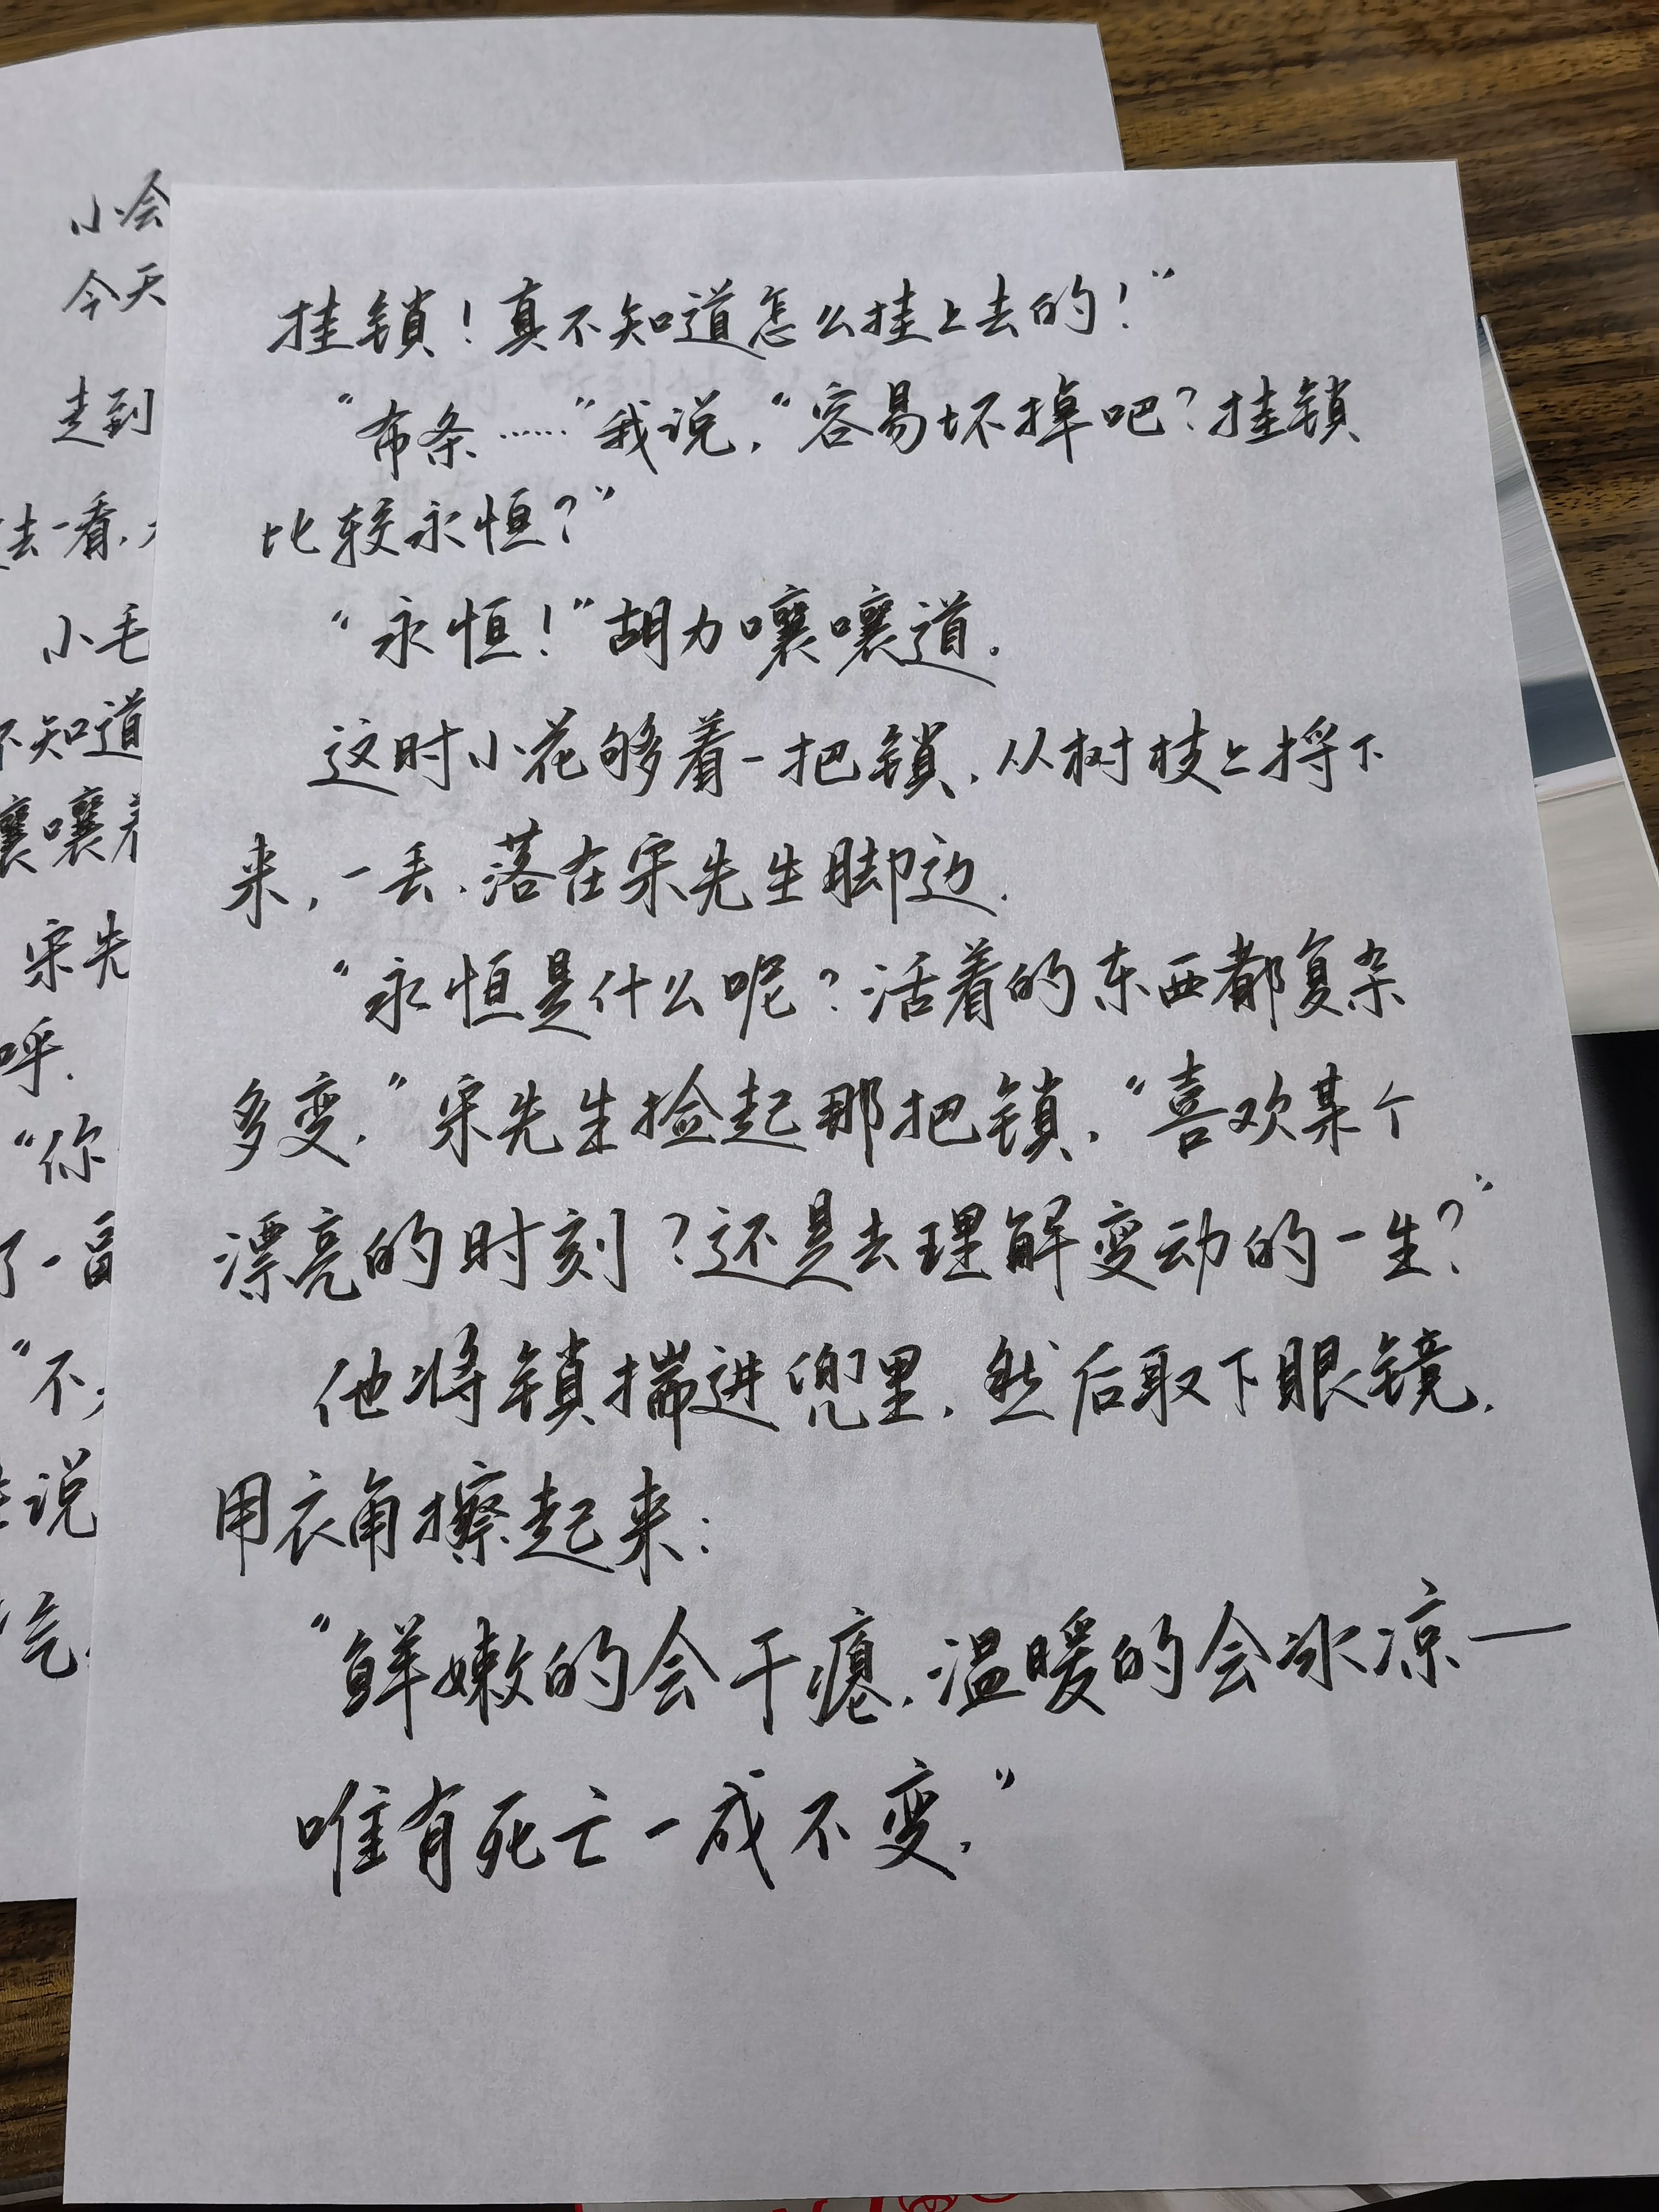 小会
今天
走到
去一看,
小毛
不知道
嚷嚷着
宋先
呼.
“你
了一
“不
说
气
挂锁!真不知道怎么挂上去的!”
“布条……”我说,“容易坏掉吧?挂锁
比较永恒?”
“永恒!”胡力嚷嚷道.
这时小花够着一把锁,从树枝上捋下
来,一丢,落在宋先生脚边.
“永恒是什么呢?活着的东西都复杂
多变,”宋先生捡起那把锁,“喜欢某个
漂亮的时刻?还是去理解变动的一生?”
他将锁揣进兜里,然后取下眼镜,
用衣角擦起来:
“鲜嫩的会干瘪,温暖的会冰凉—
唯有死亡一成不变.”